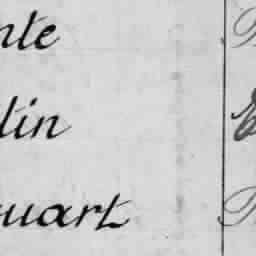 nte
tin
uart